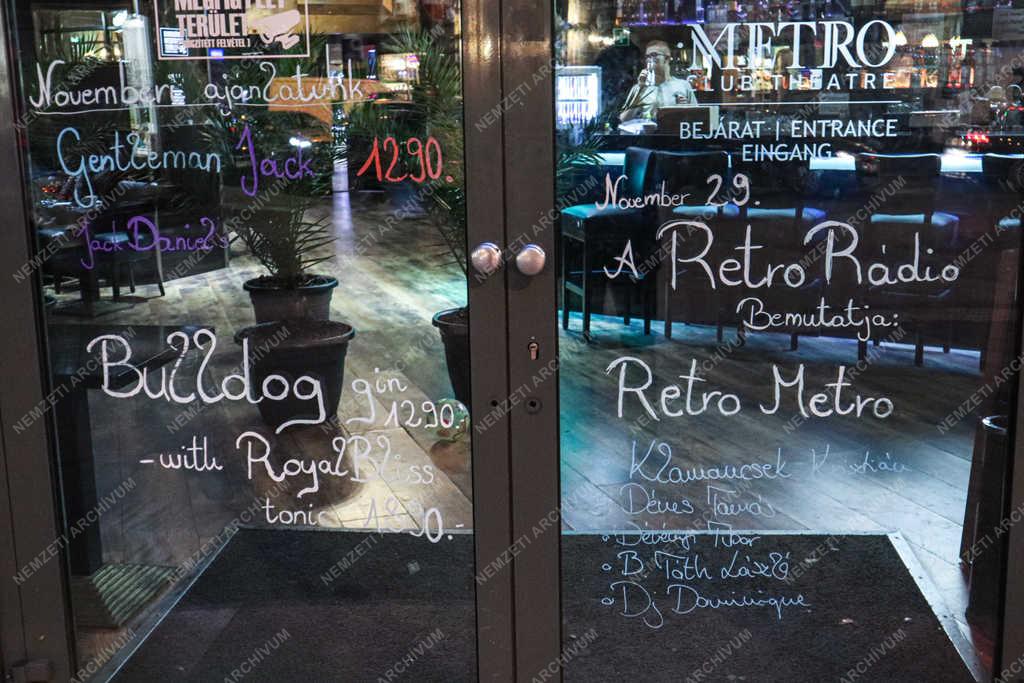 MEGFIGYELT
TERÜLET
[RÖGZÍTETT FELVÉTEL]
Novemberi ajánlatunk
Gentleman Jack 1290.-
Jack Daniel's
Bulldog gin
1290.-
- with Royal Bliss
tonic 1890.-
METRO
CLUB THEATRE
BEJÁRAT | ENTRANCE
EINGANG
November 29.
A Retro Rádió
Bemutatja:
Retro Metro
Klamancsek Krisztián
Dénes Tamás
Dévényi Tibor
B. Tóth László
Dj Dominique
NEMZETI ARCHÍVUM